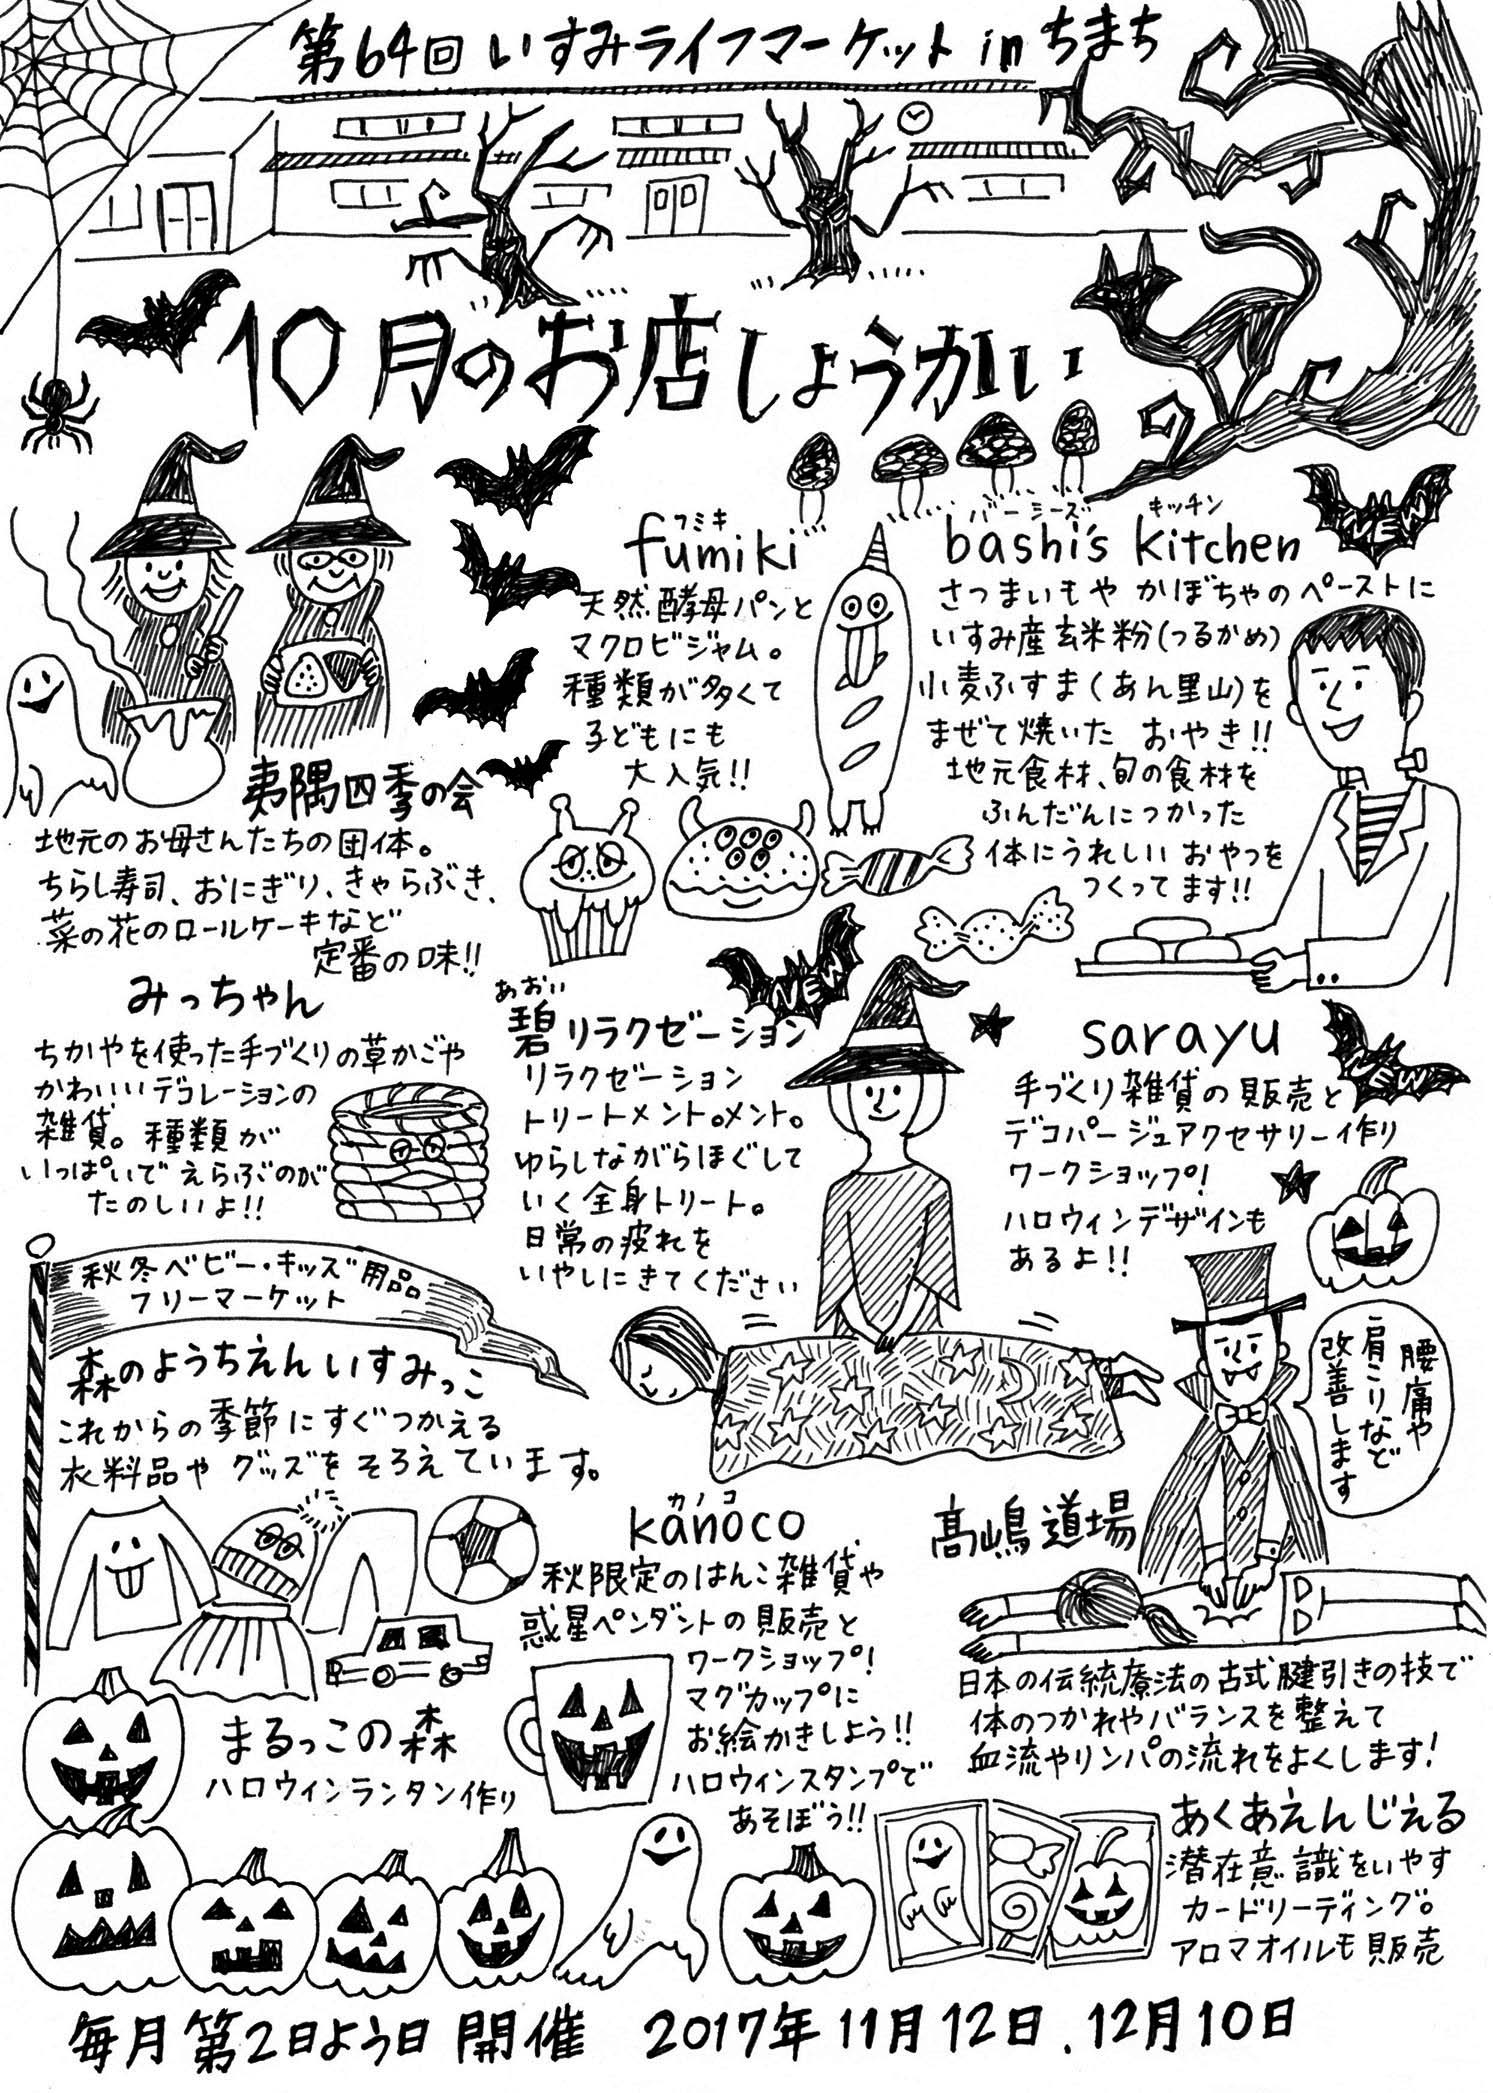 第64回 いすみライフマーケット in ちまち
10月のお店しょうかい
夷隅四季の会
地元のお母さんたちの団体。
ちらし寿司、おにぎり、きゃらぶき、
菜の花のロールケーキなど
定番の味!!
フミキ
fumiki
天然酵母パンと
マクロビジャム。
種類が多くて
子どもにも
大人気!!
バーシーズ キッチン
bashi's kitchen
NEW
さつまいもや かぼちゃのペーストに
いすみ産玄米粉(つるかめ)
小麦ふすま(あん里山)を
まぜて焼いた おやき!!
地元食材、旬の食材を
ふんだんにつかった
体にうれしい おやつを
つくってます!!
みっちゃん
ちがやを使った手づくりの草かごや
かわいいデコレーションの
雑貨。種類が
いっぱいで えらぶのが
たのしいよ!!
あおい
碧リラクゼーション
NEW
リラクゼーション
トリートメント。メント。
ゆらしながらほぐして
いく全身トリート。
日常の疲れを
いやしにきてください
sarayu
NEW
手づくり雑貨の販売と
デコパージュアクセサリー作り
ワークショップ!
ハロウィンデザインも
あるよ!!
秋冬ベビー・キッズ用品
フリーマーケット
森のようちえん いすみっこ
これからの季節にすぐつかえる
衣料品や グッズをそろえています。
腰痛や
肩こりなど
改善します
高嶋道場
日本の伝統療法の古式腱引きの技で
体のつかれやバランスを整えて
血流やリンパの流れをよくします!
カノコ
kanoco
秋限定のはんこ雑貨や
惑星ペンダントの販売と
ワークショップ!
マグカップに
お絵かきしよう!!
ハロウィンスタンプで
あそぼう!!
まるっこの森
ハロウィンランタン作り
あくあえんじぇる
潜在意識をいやす
カードリーディング。
アロマオイルも販売
毎月第2日よう日 開催 2017年11月12日、12月10日